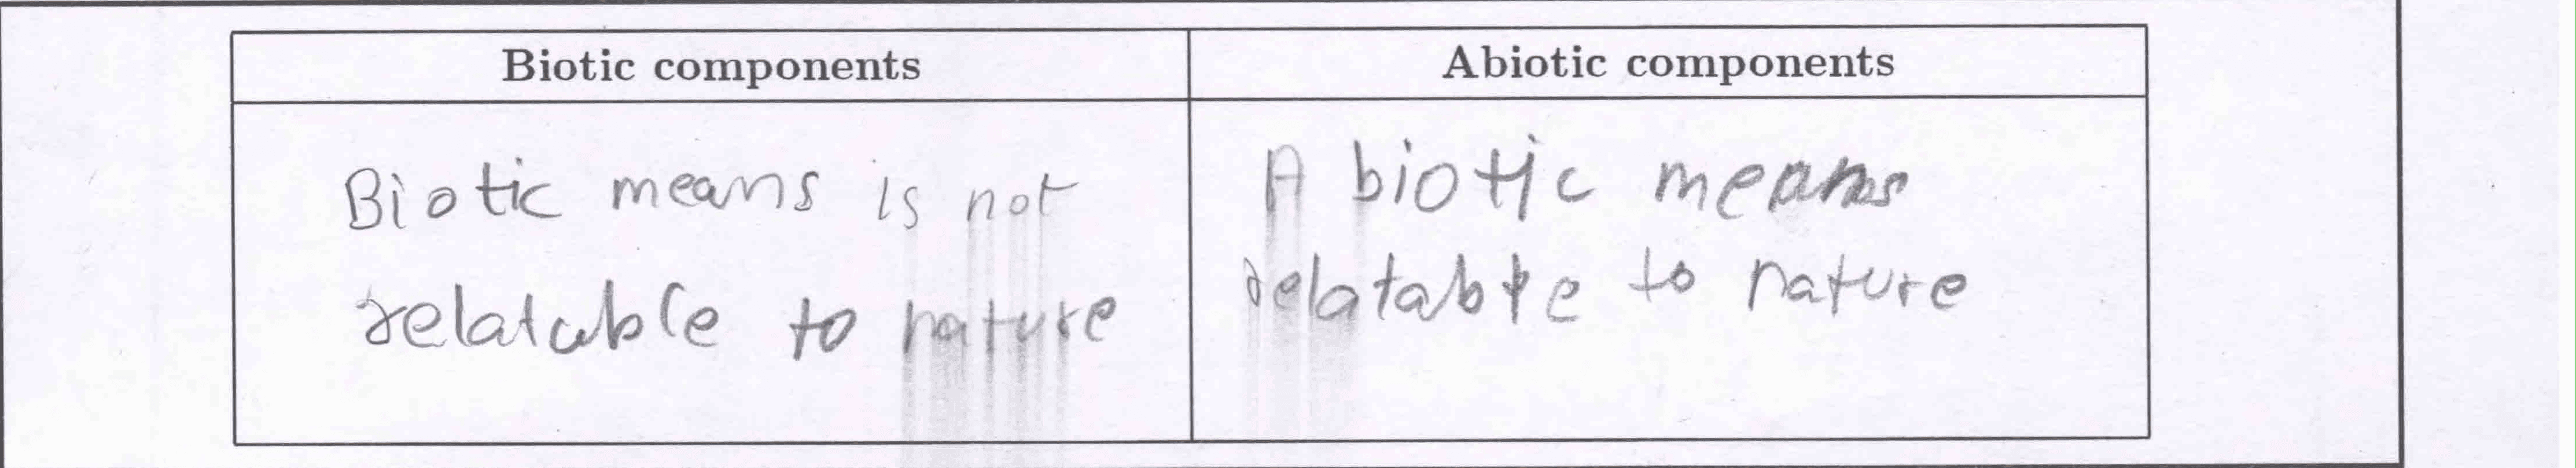 Biotic components
Abiotic components
Biotic means is not
relatable to nature
A biotic means
relatable to nature